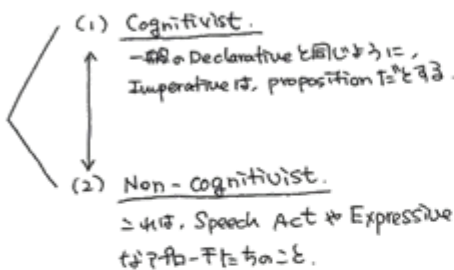 (1) Cognitivist.
一般のDeclarativeと同じように,
Imperativeは, propositionだとする.
(2) Non-cognitivist.
これは, Speech Act や Expressive
なアプローチたちのこと.